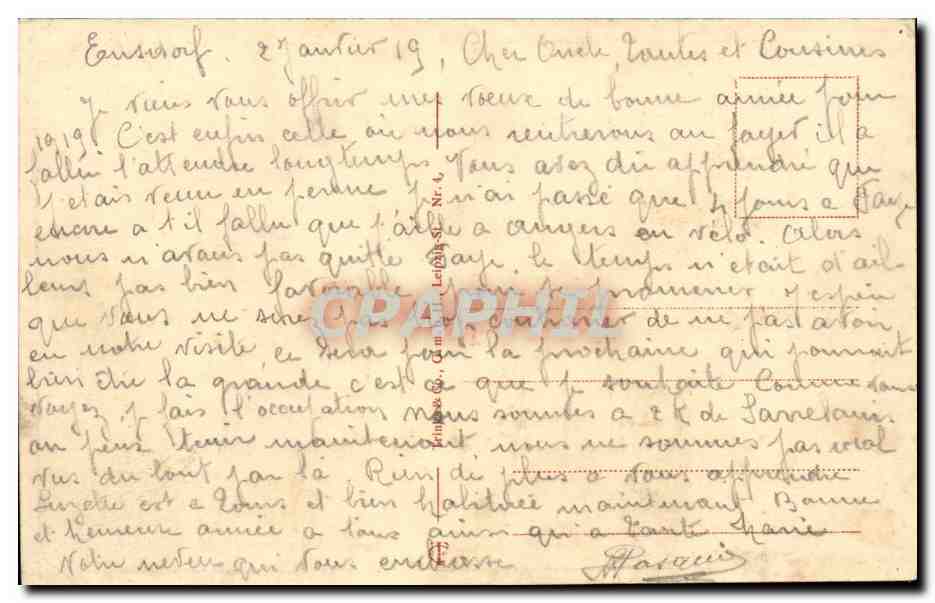 Ensdorf. 2 Janvier 19, Cher Oncle, Tantes et Cousines
Je viens vous offrir mes voeux de bonne année pour
1919 C'est enfin celle où nous rentrerons au foyer il a
fallu l'attendre longtemps Vous avez dû apprendre que
j'etais venu en perme je n'ai passé que 4 jours a
encore a t'il fallu que j'aille a angers en vélo. Alors
nous n'avons pas quitté le temps n'était d'ail
leurs pas bien favorable pour se promener J'espère
que vous ne serez pas trop de ne pas avoir
eu notre visite ce sera pour la prochaine qui pourrait
bien être la grande c'est ce que je souhaite Comme vous
voyez je fais l'occupation nous sommes a 2 K de Sarrelouis
on peus tenir maintenant nous ne sommes pas mal
vus du tout par la Rien de plus a vous apprendre
Suzette est a Tours et bien habituée maintenant Bonne
et heureuse année a tous ainsi qu'a Tante Marie
Votre neveu qui vous embrasse
CPAPHIL
Leipzig-St. Nr. 4